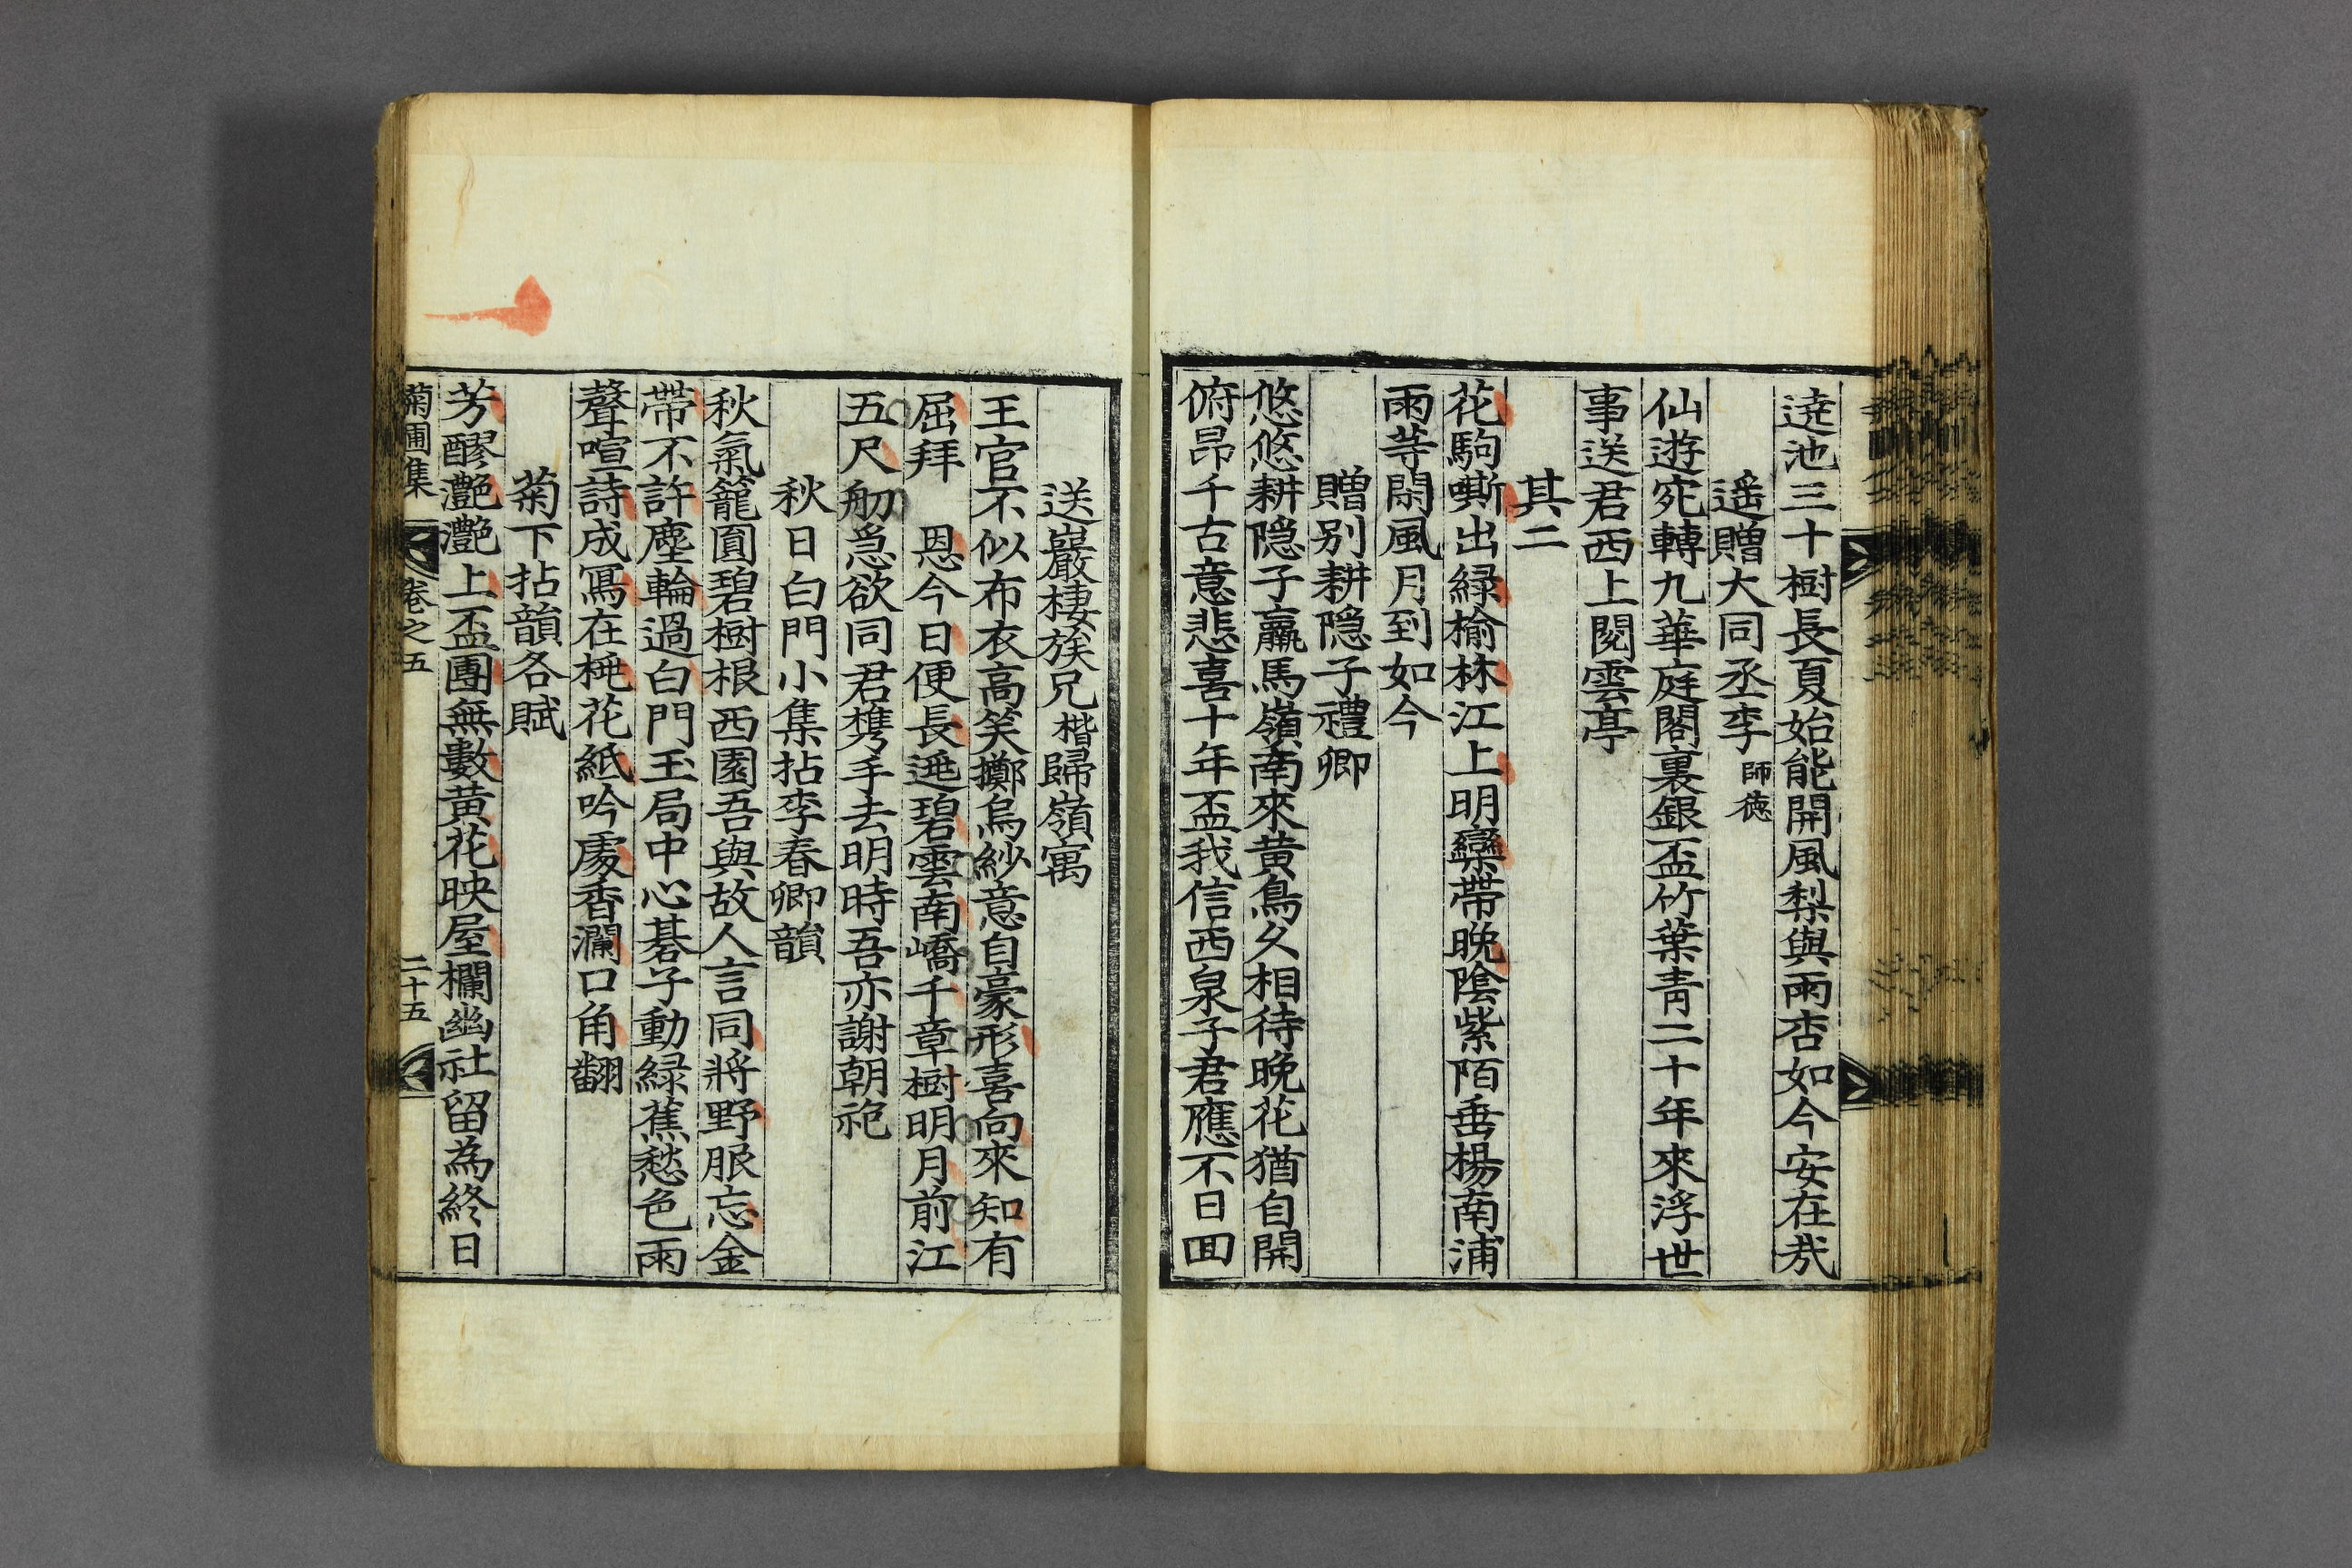 遶池三十樹長夏始能開風梨與雨杏如今安在㦲
遥贈大同丞李師德
仙遊宛轉九華庭閣裏銀盃竹葉靑二十年來浮世
事送君西上閱雲亭
其二
花駒嘶出緑楡林江上明欒帶晩陰紫陌垂楊南浦
雨等閑風月到如今
贈別耕隐子禮卿
悠悠耕隐子羸馬嶺南來黄鳥久相待晩花猶自開
俯昂千古意悲喜十年盃我信西泉子君應不日囬
送巖棲族兄楷歸嶺寓
王官不似布衣高笑擲烏紗意自豪形喜向來知有
屈拜 恩今日便長逃碧雲南嶠千章樹明月前江
五尺舠急欲同君携手去明時吾亦謝朝袍
秋日白門小集拈李春卿韻
秋氣籠圓碧樹根西園吾與故人言同將野服忘金
帶不許塵輪過白門玉局中心碁子動緑蕉愁色雨
聲喧詩成冩在桃花紙吟處香瀾口角翻
菊下拈韻各賦
芳醪灔灔上盃團無數黄花映屋欄幽社留為終日
菊圃集 卷之五 二十五